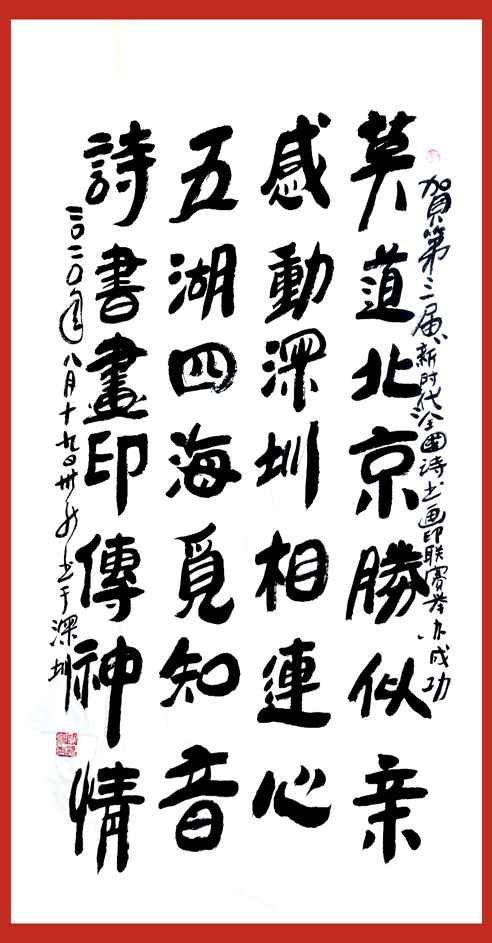 賀第三届新时代全國诗书画印联赛举办成功
莫道北京勝似亲
感動深圳相連心
五湖四海覓知音
詩書畫印傳神情
二〇二〇年八月十九日书于深圳